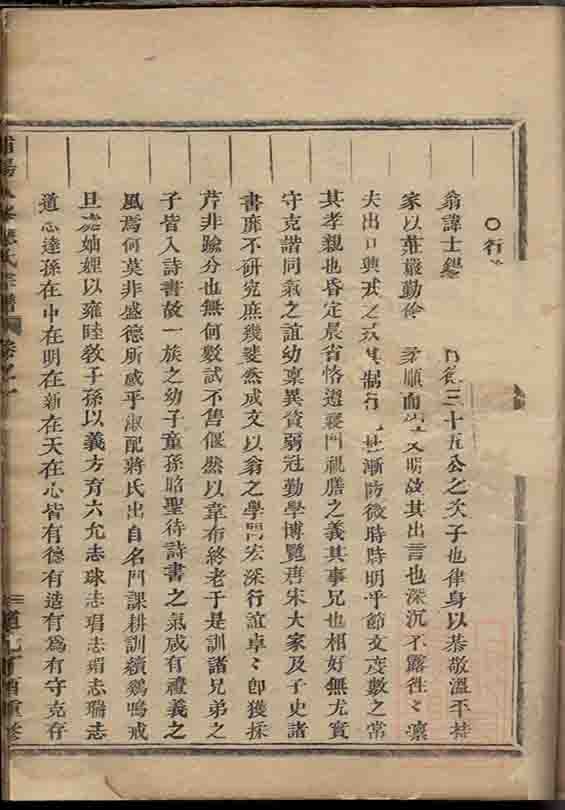 ○行
翁諱士 三十五公之次子也律身以恭敬溫平持
家以莊嚴勤儉 柔順面 文明故其出言也深沉不露徃〻凜
夫出口興戎之戒其制行 漸防微時時明乎節文度數之常
其孝親也昏定晨省恪遵寢門視膳之義其事兄也相好無尤實
守克諧同氣之誼幼稟異資弱冠勤學博覽唐宋大家及子史諸
書靡不研究庶幾斐然成文以翁之學問宏深行誼卓〻卽獲採
芹非踰分也無何數試不售偃然以韋布終老于是訓諸兄弟之
子皆入詩書故一族之幼子童孫昭聖待詩書之氣咸有禮義之
風焉何莫非盛德所感乎淑配蔣氏出自名門課耕訓績鷄鳴戒
旦處妯娌以雍睦敎子孫以義方育六允志球志琩志瑁志瑞志
道志達孫在中在明在新在天在心皆有德有造有爲有守克存
氏宗譜 卷之
酉重修